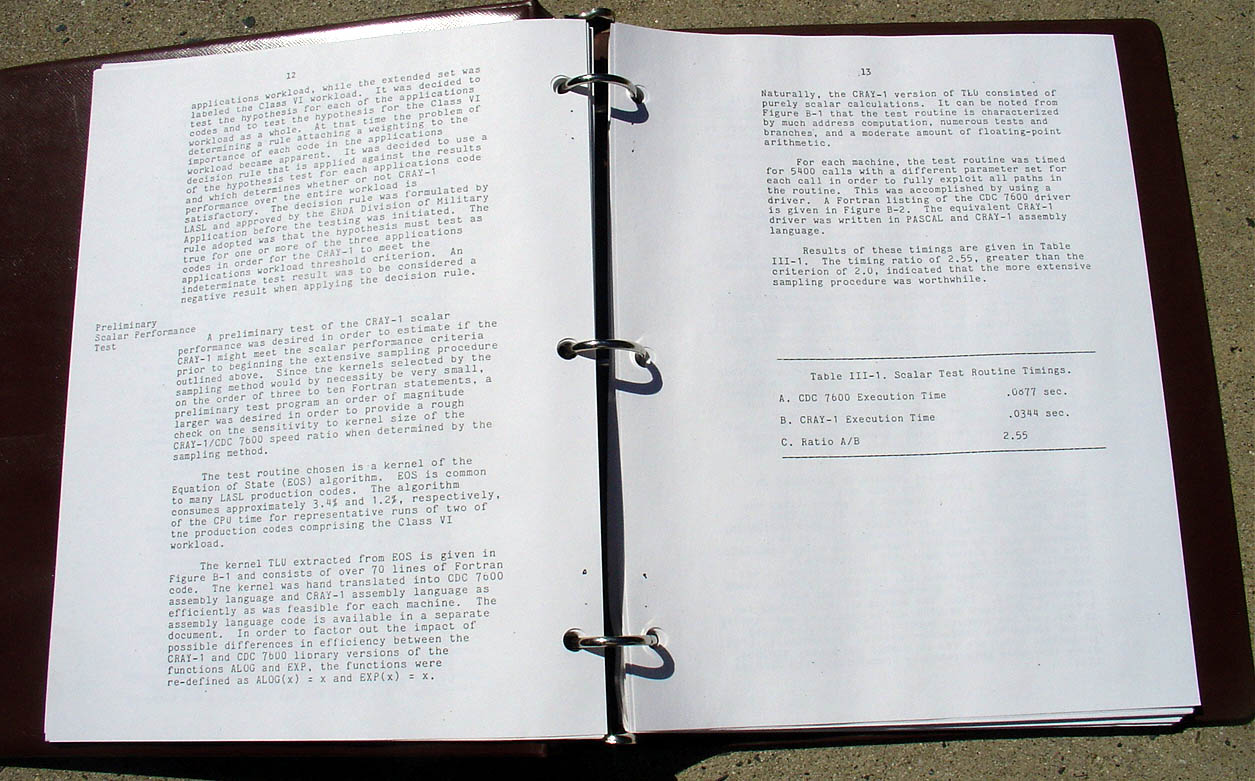 12
applications workload, while the extended set was
labeled the Class VI workload. It was decided to
test the hypothesis for each of the applications
codes and to test the hypothesis for the Class VI
workload as a whole. At that time the problem of
determining a rule attaching a weighting to the
importance of each code in the applications
workload became apparent. It was decided to use a
decision rule that is applied against the results
of the hypothesis test for each applications code
and which determines whether or not CRAY-1
performance over the entire workload is
satisfactory. The decision rule was formulated by
LASL and approved by the ERDA Division of Military
Application before the testing was initiated. The
rule adopted was that the hypothesis must test as
true for one or more of the three applications
codes in order for the CRAY-1 to meet the
applications workload threshold criterion. An
indeterminate test result was to be considered a
negative result when applying the decision rule.
Preliminary
Scalar Performance
Test
A preliminary test of the CRAY-1 scalar
performance was desired in order to estimate if the
CRAY-1 might meet the scalar performance criteria
prior to beginning the extensive sampling procedure
outlined above. Since the kernels selected by the
sampling method would by necessity be very small,
on the order of three to ten Fortran statements, a
preliminary test program an order of magnitude
larger was desired in order to provide a rough
check on the sensitivity to kernel size of the
CRAY-1/CDC 7600 speed ratio when determined by the
sampling method.
The test routine chosen is a kernel of the
Equation of State (EOS) algorithm. EOS is common
to many LASL production codes. The algorithm
consumes approximately 3.4% and 1.2%, respectively,
of the CPU time for representative runs of two of
the production codes comprising the Class VI
workload.
The kernel TLU extracted from EOS is given in
Figure B-1 and consists of over 70 lines of Fortran
code. The kernel was hand translated into CDC 7600
assembly language and CRAY-1 assembly language as
efficiently as was feasible for each machine. The
assembly language code is available in a separate
document. In order to factor out the impact of
possible differences in efficiency between the
CRAY-1 and CDC 7600 library versions of the
functions ALOG and EXP, the functions were
re-defined as ALOG(x) = x and EXP(x) = x.
13
Naturally, the CRAY-1 version of TLU consisted of
purely scalar calculations. It can be noted from
Figure B-1 that the test routine is characterized
by much address computation, numerous tests and
branches, and a moderate amount of floating-point
arithmetic.
For each machine, the test routine was timed
for 5400 calls with a different parameter set for
each call in order to fully exploit all paths in
the routine. This was accomplished by using a
driver. A Fortran listing of the CDC 7600 driver
is given in Figure B-2. The equivalent CRAY-1
driver was written in PASCAL and CRAY-1 assembly
language.
Results of these timings are given in Table
III-1. The timing ratio of 2.55, greater than the
criterion of 2.0, indicated that the more extensive
sampling procedure was worthwhile.
Table III-1. Scalar Test Routine Timings.
A. CDC 7600 Execution Time .0877 sec.
B. CRAY-1 Execution Time .0344 sec.
C. Ratio A/B 2.55